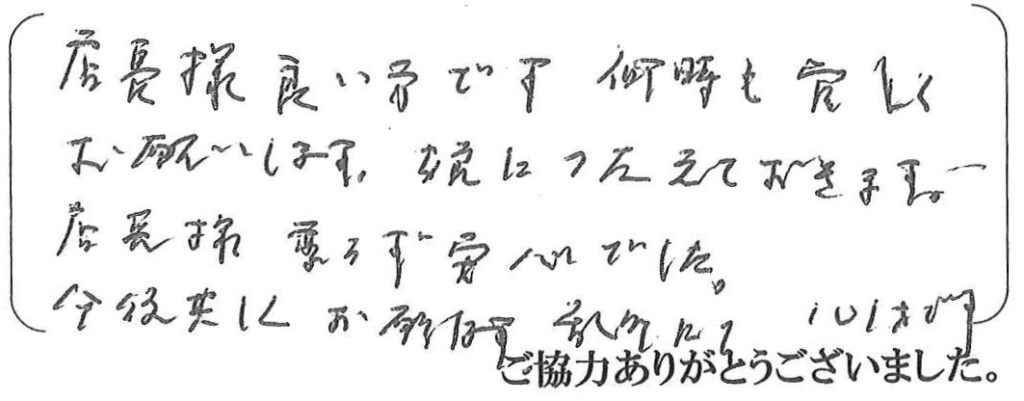 店長様良い方です 何時も宜しく
お願いします。 につたえておきます。
店長様 変らず安心でした。
今後共しく お願います 101才です
ご協力ありがとうございました。